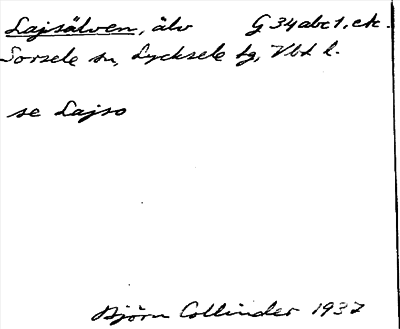 Lajsälven, älv G 34abc1, etc.
Sorsele sn, Lycksele tg, Vbd l.
se Lajso
Björn Collinder 1937